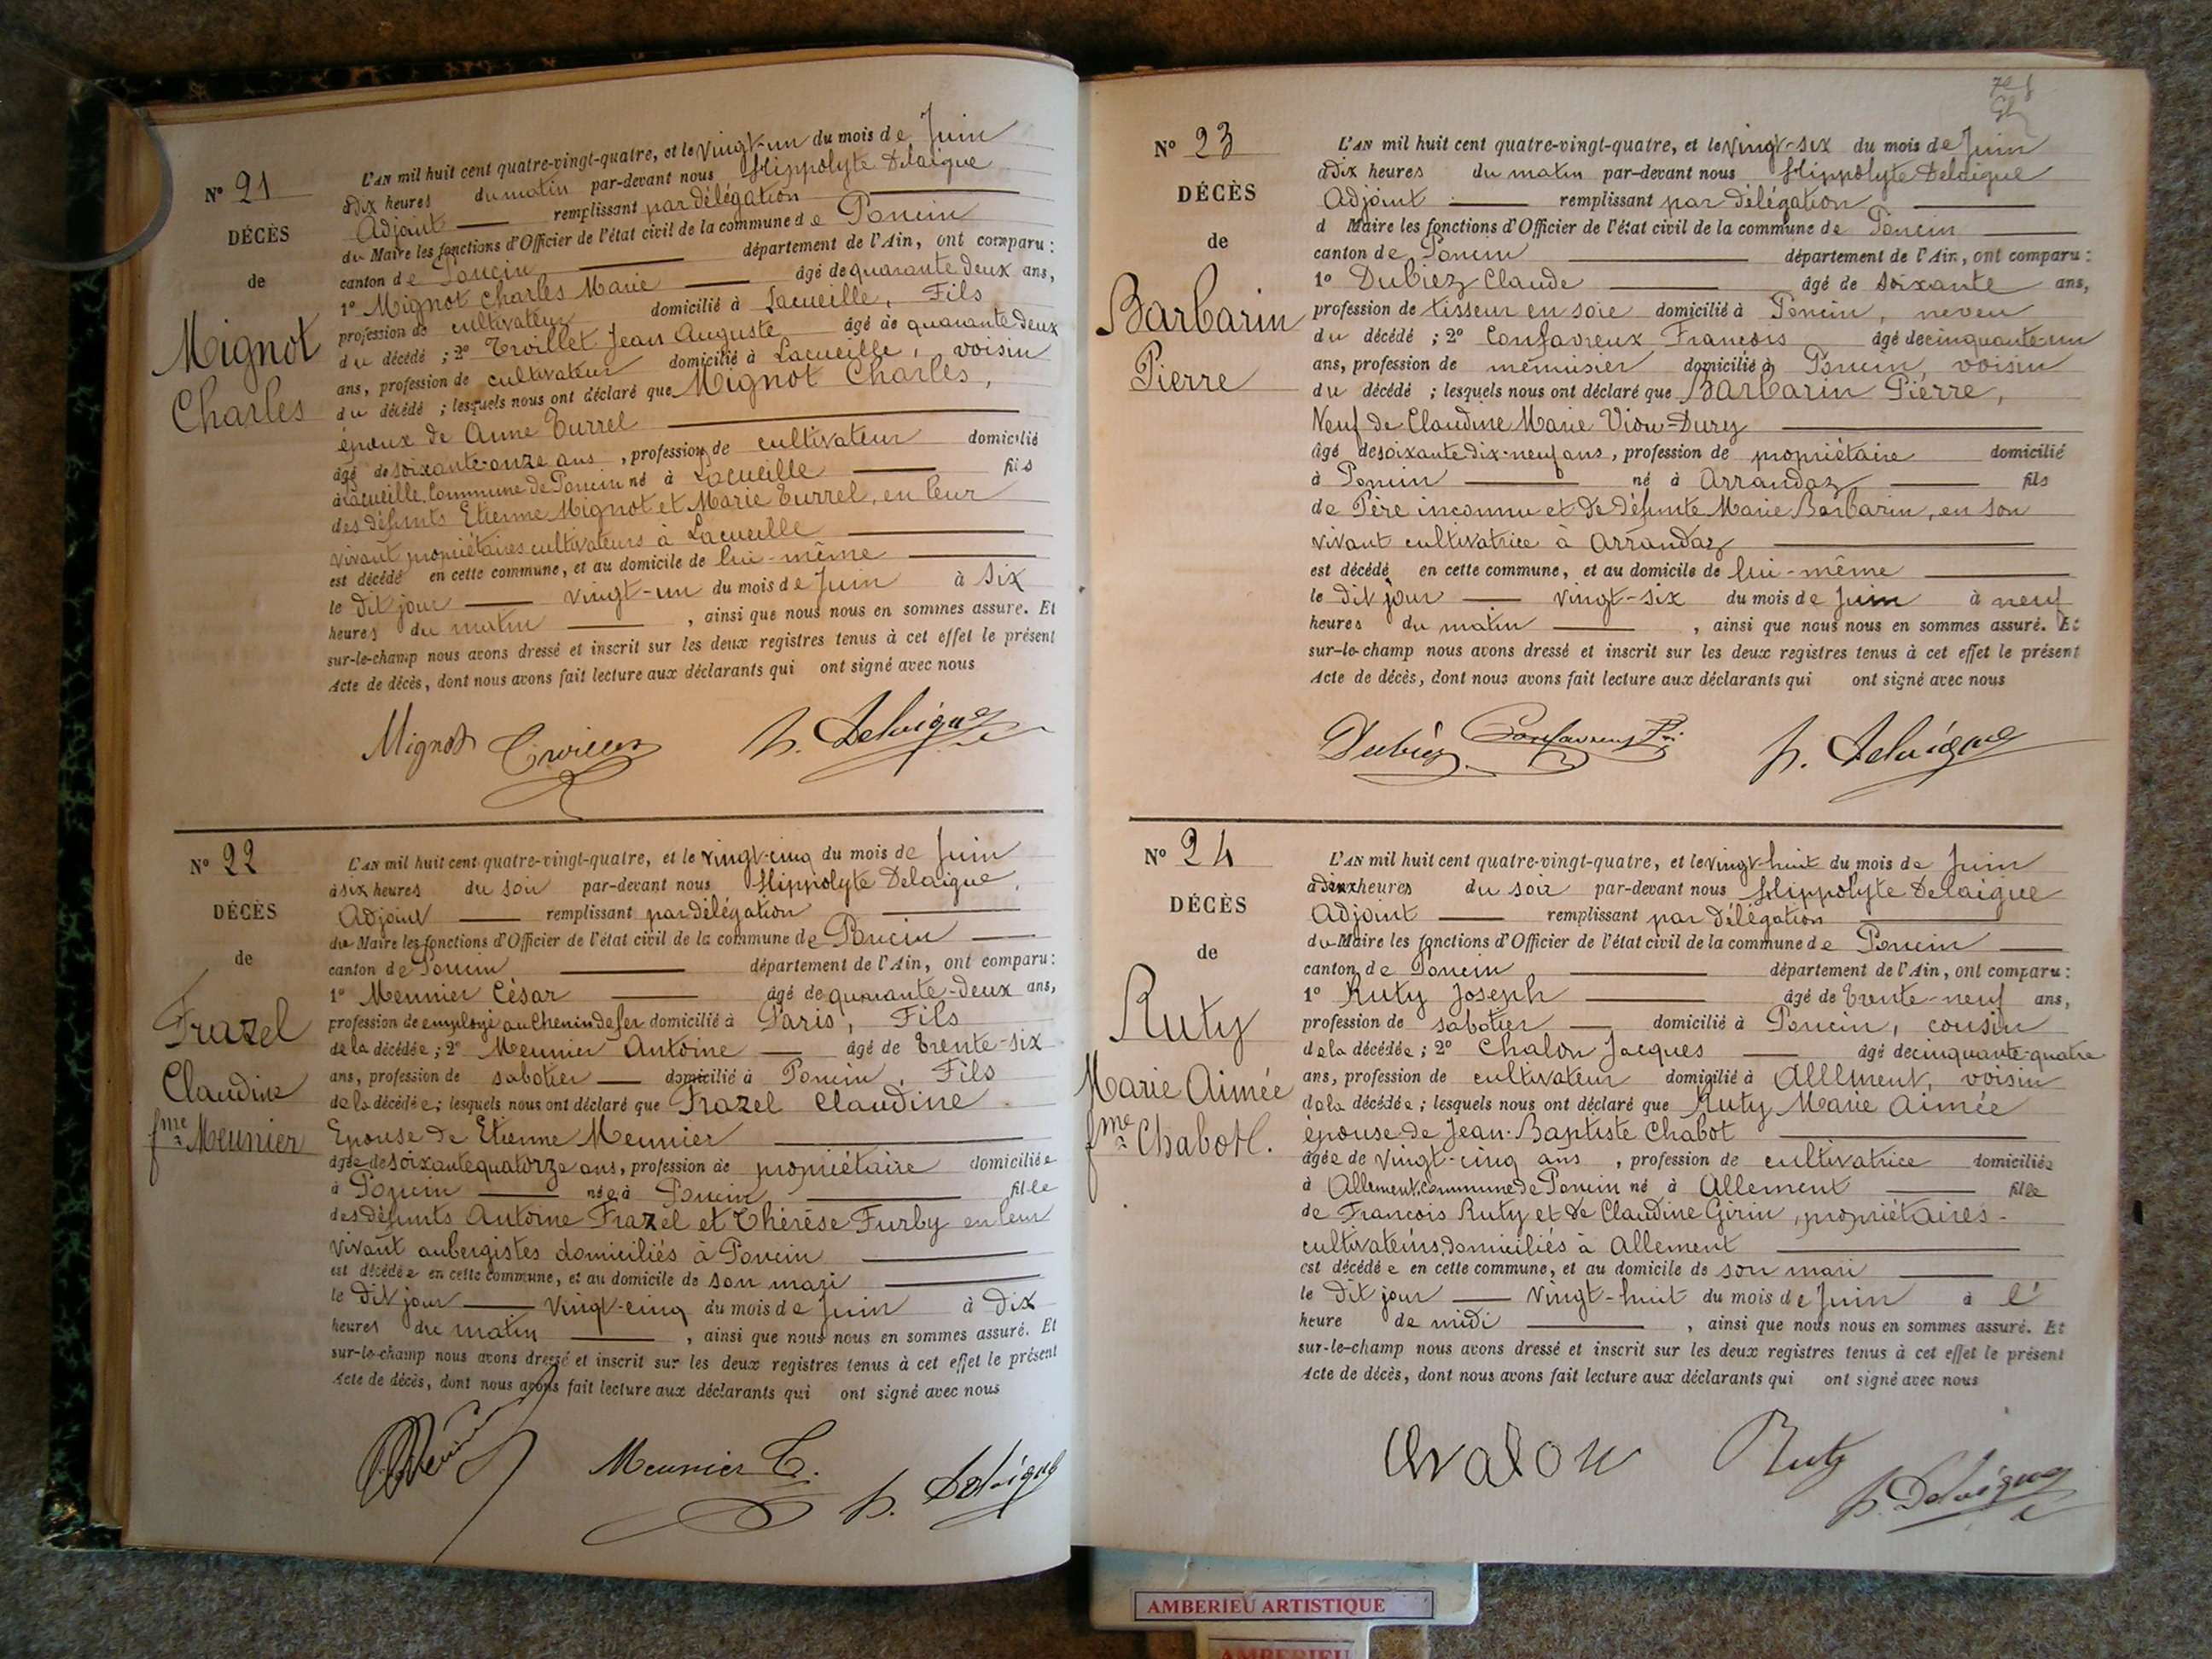 Nº 21
DÉCÈS
de
Mignot
Charles
L'AN mil huit cent quatre-vingt-quatre, et le vingt-un du mois de Juin
à dix heures du matin par-devant nous Hippolyte Delaigue
Adjoint remplissant par délégation
du Maire les fonctions d'Officier de l'état civil de la commune de Poncin
canton de Poncin département de l'Ain, ont comparu :
1º Mignot Charles Marie âgé de quarante deux ans,
profession de cultivateur domicilié à Lacueille, Fils
du décédé ; 2º Trvillet Jean Auguste âgé de quarante deux
ans, profession de cultivateur domicilié à Lacueille, voisin
du décédé ; lesquels nous ont déclaré que Mignot Charles,
époux de Anne Turrel
âgé de soixante-onze ans, profession de cultivateur domicilié
à Lacueille, Commune de Poncin né à Lacueille fils
des défunts Etienne Mignot et Marie Turrel, en leur
vivant propriétaires cultivateurs à Lacueille
est décédé en cette commune, et au domicile de lui-même
le dit jour vingt-un du mois de Juin à six
heures du matin, ainsi que nous nous en sommes assuré. Et
sur-le-champ nous avons dressé et inscrit sur les deux registres tenus à cet effet le présent
Acte de décès, dont nous avons fait lecture aux déclarants qui ont signé avec nous
Mignot h. Delaigue
Nº 22
DÉCÈS
de
Frazel
Claudine
fme Meunier
L'AN mil huit cent quatre-vingt-quatre, et le vingt-cinq du mois de Juin
à six heures du soir par-devant nous Hippolyte Delaigue,
Adjoint remplissant par délégation
du Maire les fonctions d'Officier de l'état civil de la commune de Poncin
canton de Poncin département de l'Ain, ont comparu :
1º Meunier César âgé de quarante-deux ans,
profession de employé au Chemin de fer domicilié à Paris, Fils
de la décédée ; 2º Meunier Antoine âgé de trente-six
ans, profession de sabotier domicilié à Poncin, Fils
de la décédée ; lesquels nous ont déclaré que Frazel Claudine
Epouse de Etienne Meunier
âgée de soixante quatorze ans, profession de propriétaire domiciliée
à Poncin née à Poncin fille
des défunts Antoine Frazel et Thérèse Furby en leur
vivant aubergistes domiciliés à Poncin
est décédée en cette commune, et au domicile de son mari
le dit jour vingt-cinq du mois de Juin à dix
heures du matin, ainsi que nous nous en sommes assuré. Et
sur-le-champ nous avons dressé et inscrit sur les deux registres tenus à cet effet le présent
Acte de décès, dont nous avons fait lecture aux déclarants qui ont signé avec nous
Meunier C. h. Delaigue
Nº 23
DÉCÈS
de
Barbarin
Pierre
L'AN mil huit cent quatre-vingt-quatre, et le vingt-six du mois de Juin
à dix heures du matin par-devant nous Hippolyte Delaigue
Adjoint remplissant par délégation
d Maire les fonctions d'Officier de l'état civil de la commune de Poncin
canton de Poncin département de l'Ain, ont comparu :
1º Dubiez Claude âgé de soixante ans,
profession de tisseur en soie domicilié à Poncin, neveu
du décédé ; 2º Confavreux Francois âgé de cinquante-un
ans, profession de menuisier domicilié à Poncin, voisin
du décédé ; lesquels nous ont déclaré que Barbarin Pierre,
Veuf de Claudine Marie Viou-Dury
âgé de soixante dix-neuf ans, profession de propriétaire domicilié
à Poncin né à Arrandaz fils
de Père inconnu et de défunte Marie Barbarin, en son
vivant cultivatrice à Arrandaz
est décédé en cette commune, et au domicile de lui-même
le dit jour vingt-six du mois de Juin à neuf
heures du matin, ainsi que nous nous en sommes assuré. Et
sur-le-champ nous avons dressé et inscrit sur les deux registres tenus à cet effet le présent
Acte de décès, dont nous avons fait lecture aux déclarants qui ont signé avec nous
Dubiez Confavreux h. Delaigue
Nº 24
DÉCÈS
de
Ruty
Marie Aimée
fme Chabot.
L'AN mil huit cent quatre-vingt-quatre, et le vingt-huit du mois de Juin
à deux heures du soir par-devant nous Hippolyte Delaigue
Adjoint remplissant par délégation
du Maire les fonctions d'Officier de l'état civil de la commune de Poncin
canton de Poncin département de l'Ain, ont comparu :
1º Ruty Joseph âgé de trente-neuf ans,
profession de sabotier domicilié à Poncin, cousin
de la décédée ; 2º Chalon Jacques âgé de cinquante-quatre
ans, profession de cultivateur domicilié à Allement, voisin
de la décédée ; lesquels nous ont déclaré que Ruty Marie Aimée
épouse de Jean-Baptiste Chabot
âgée de vingt-cinq ans, profession de cultivatrice domiciliée
à Allement, commune de Poncin né à Allement fille
de Francois Ruty et de Claudine Girin, propriétaires-
cultivateurs, domiciliés à Allement
est décédée en cette commune, et au domicile de son mari
le dit jour vingt-huit du mois de Juin à l'
heure de midi, ainsi que nous nous en sommes assuré. Et
sur-le-champ nous avons dressé et inscrit sur les deux registres tenus à cet effet le présent
Acte de décès, dont nous avons fait lecture aux déclarants qui ont signé avec nous
Chalon Ruty
h. Delaigue
AMBERIEU ARTISTIQUE
AMBERIEU